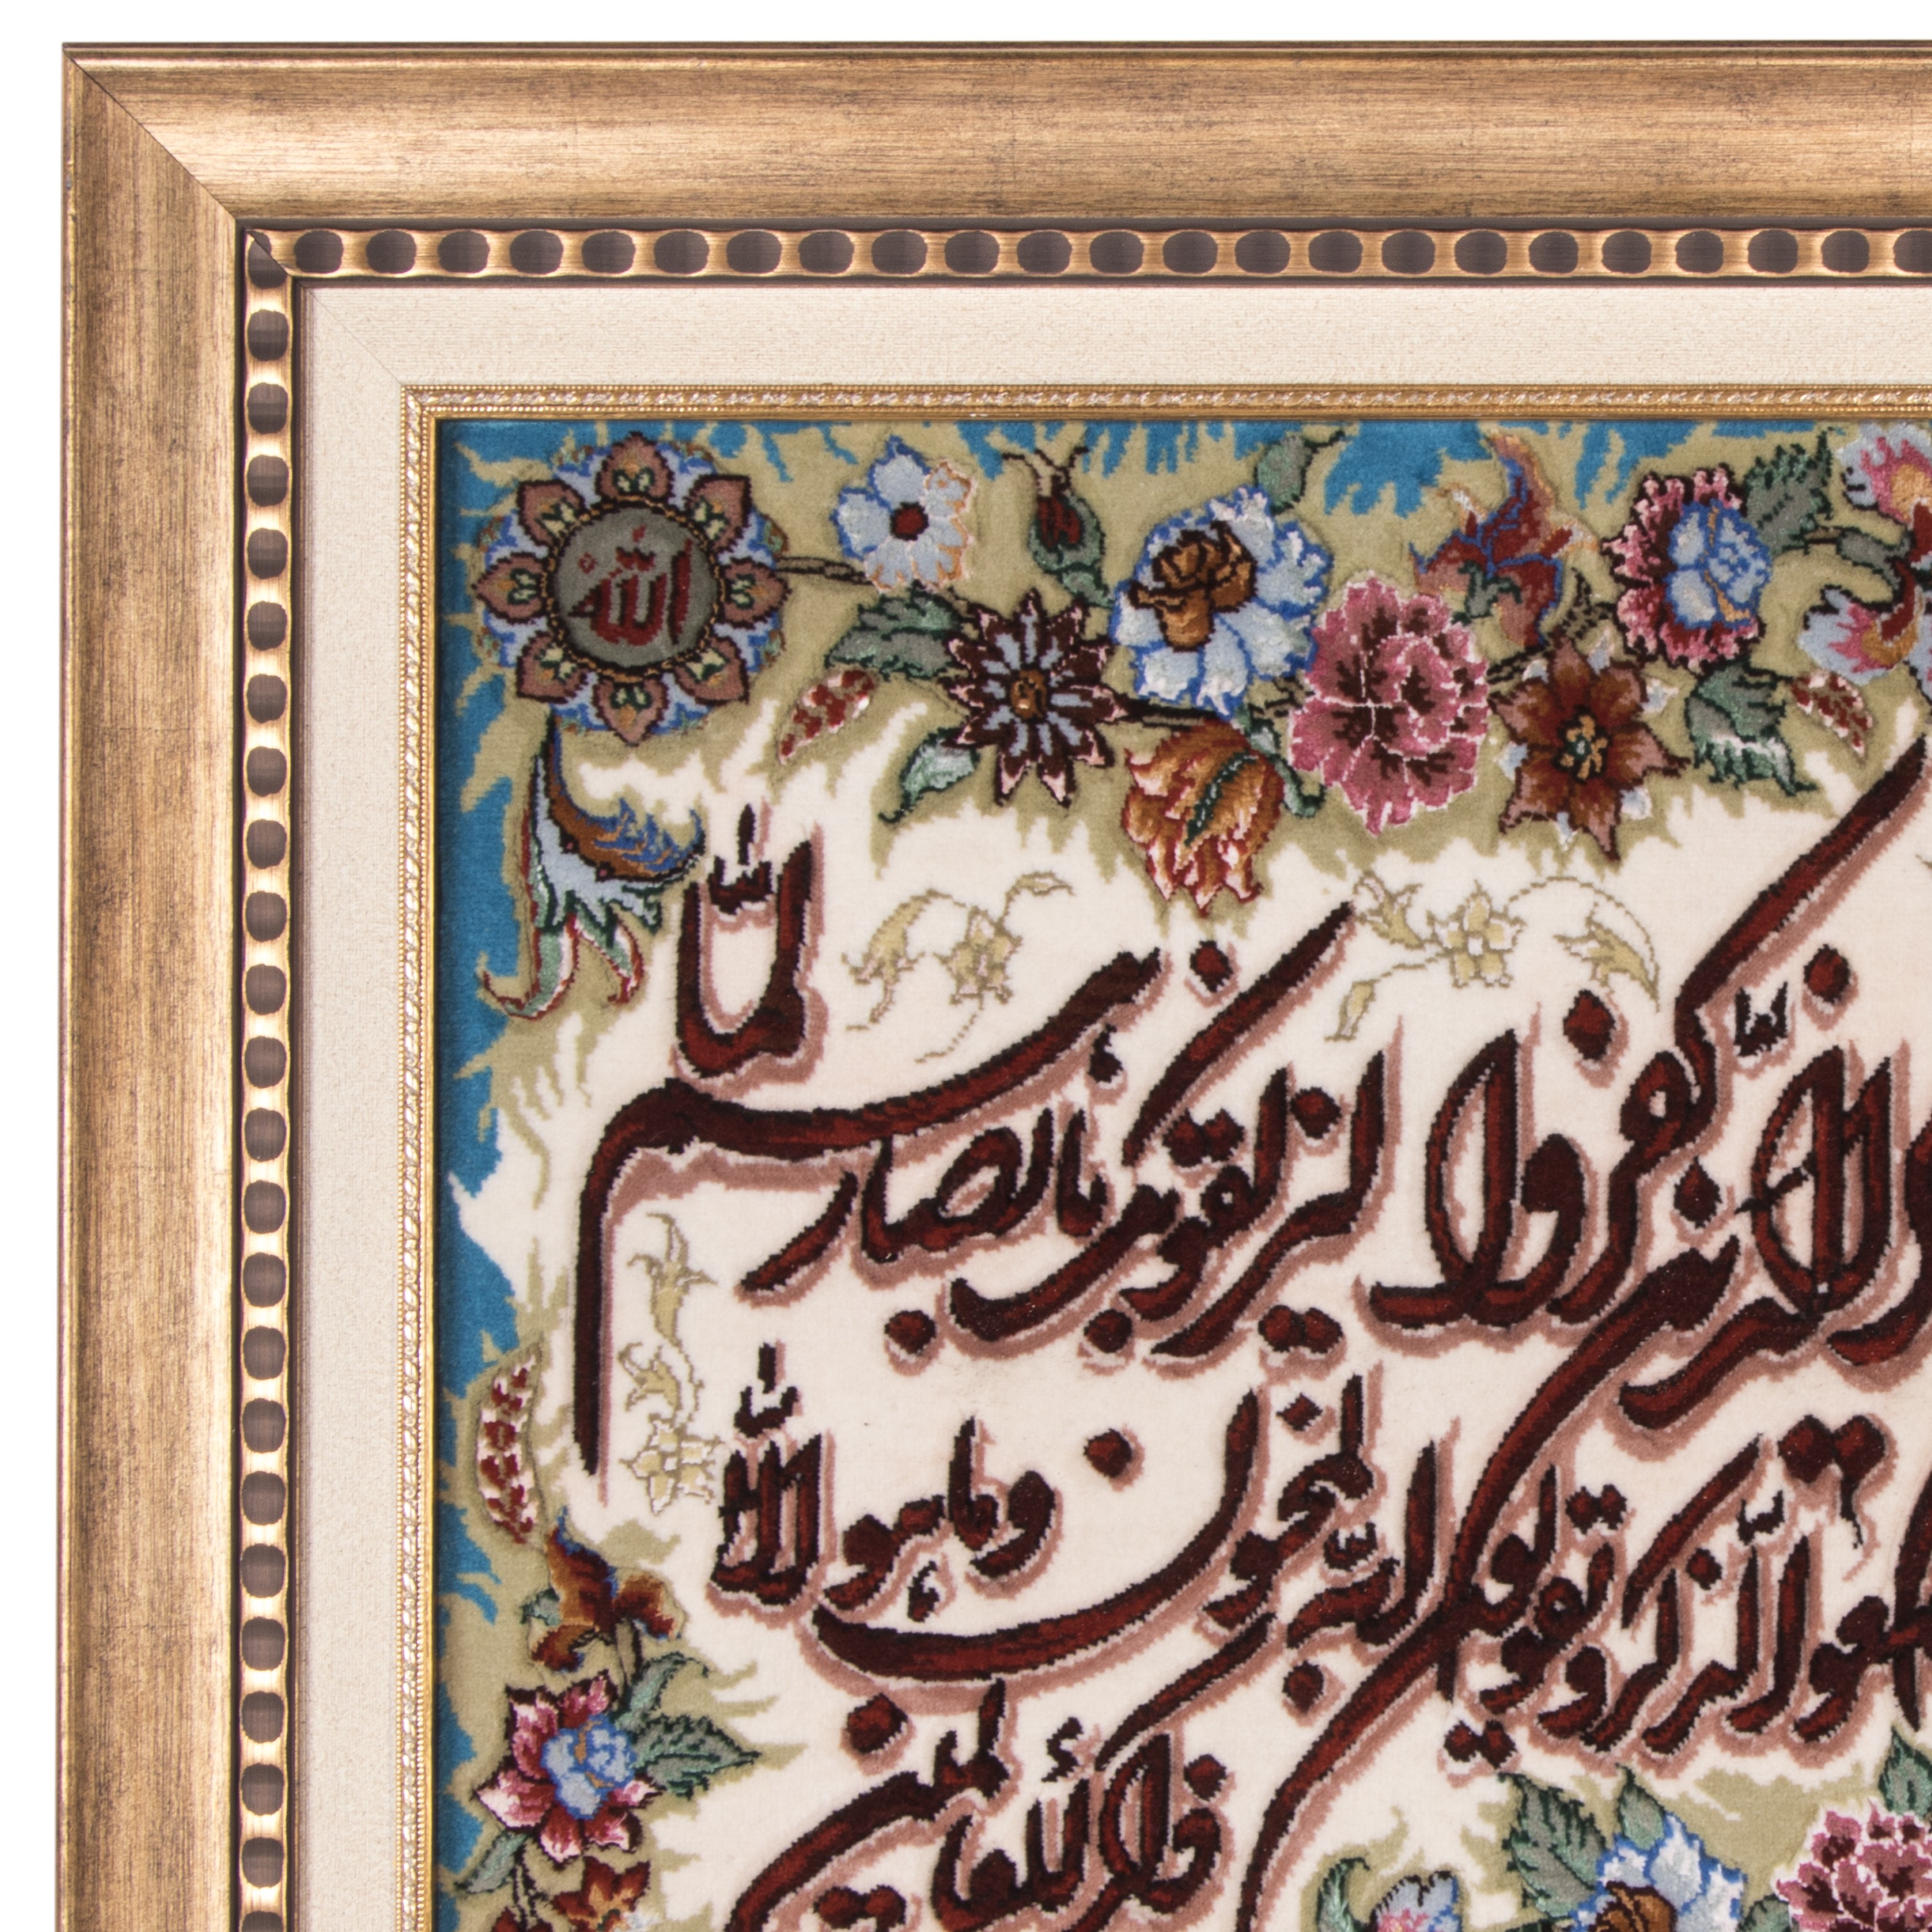 الله
الذین کفروا لیزلقونک بابصارهم لمّا
الذّکر و یقولون انّه لمجنون وما هو الّا
ذکر للعالمین